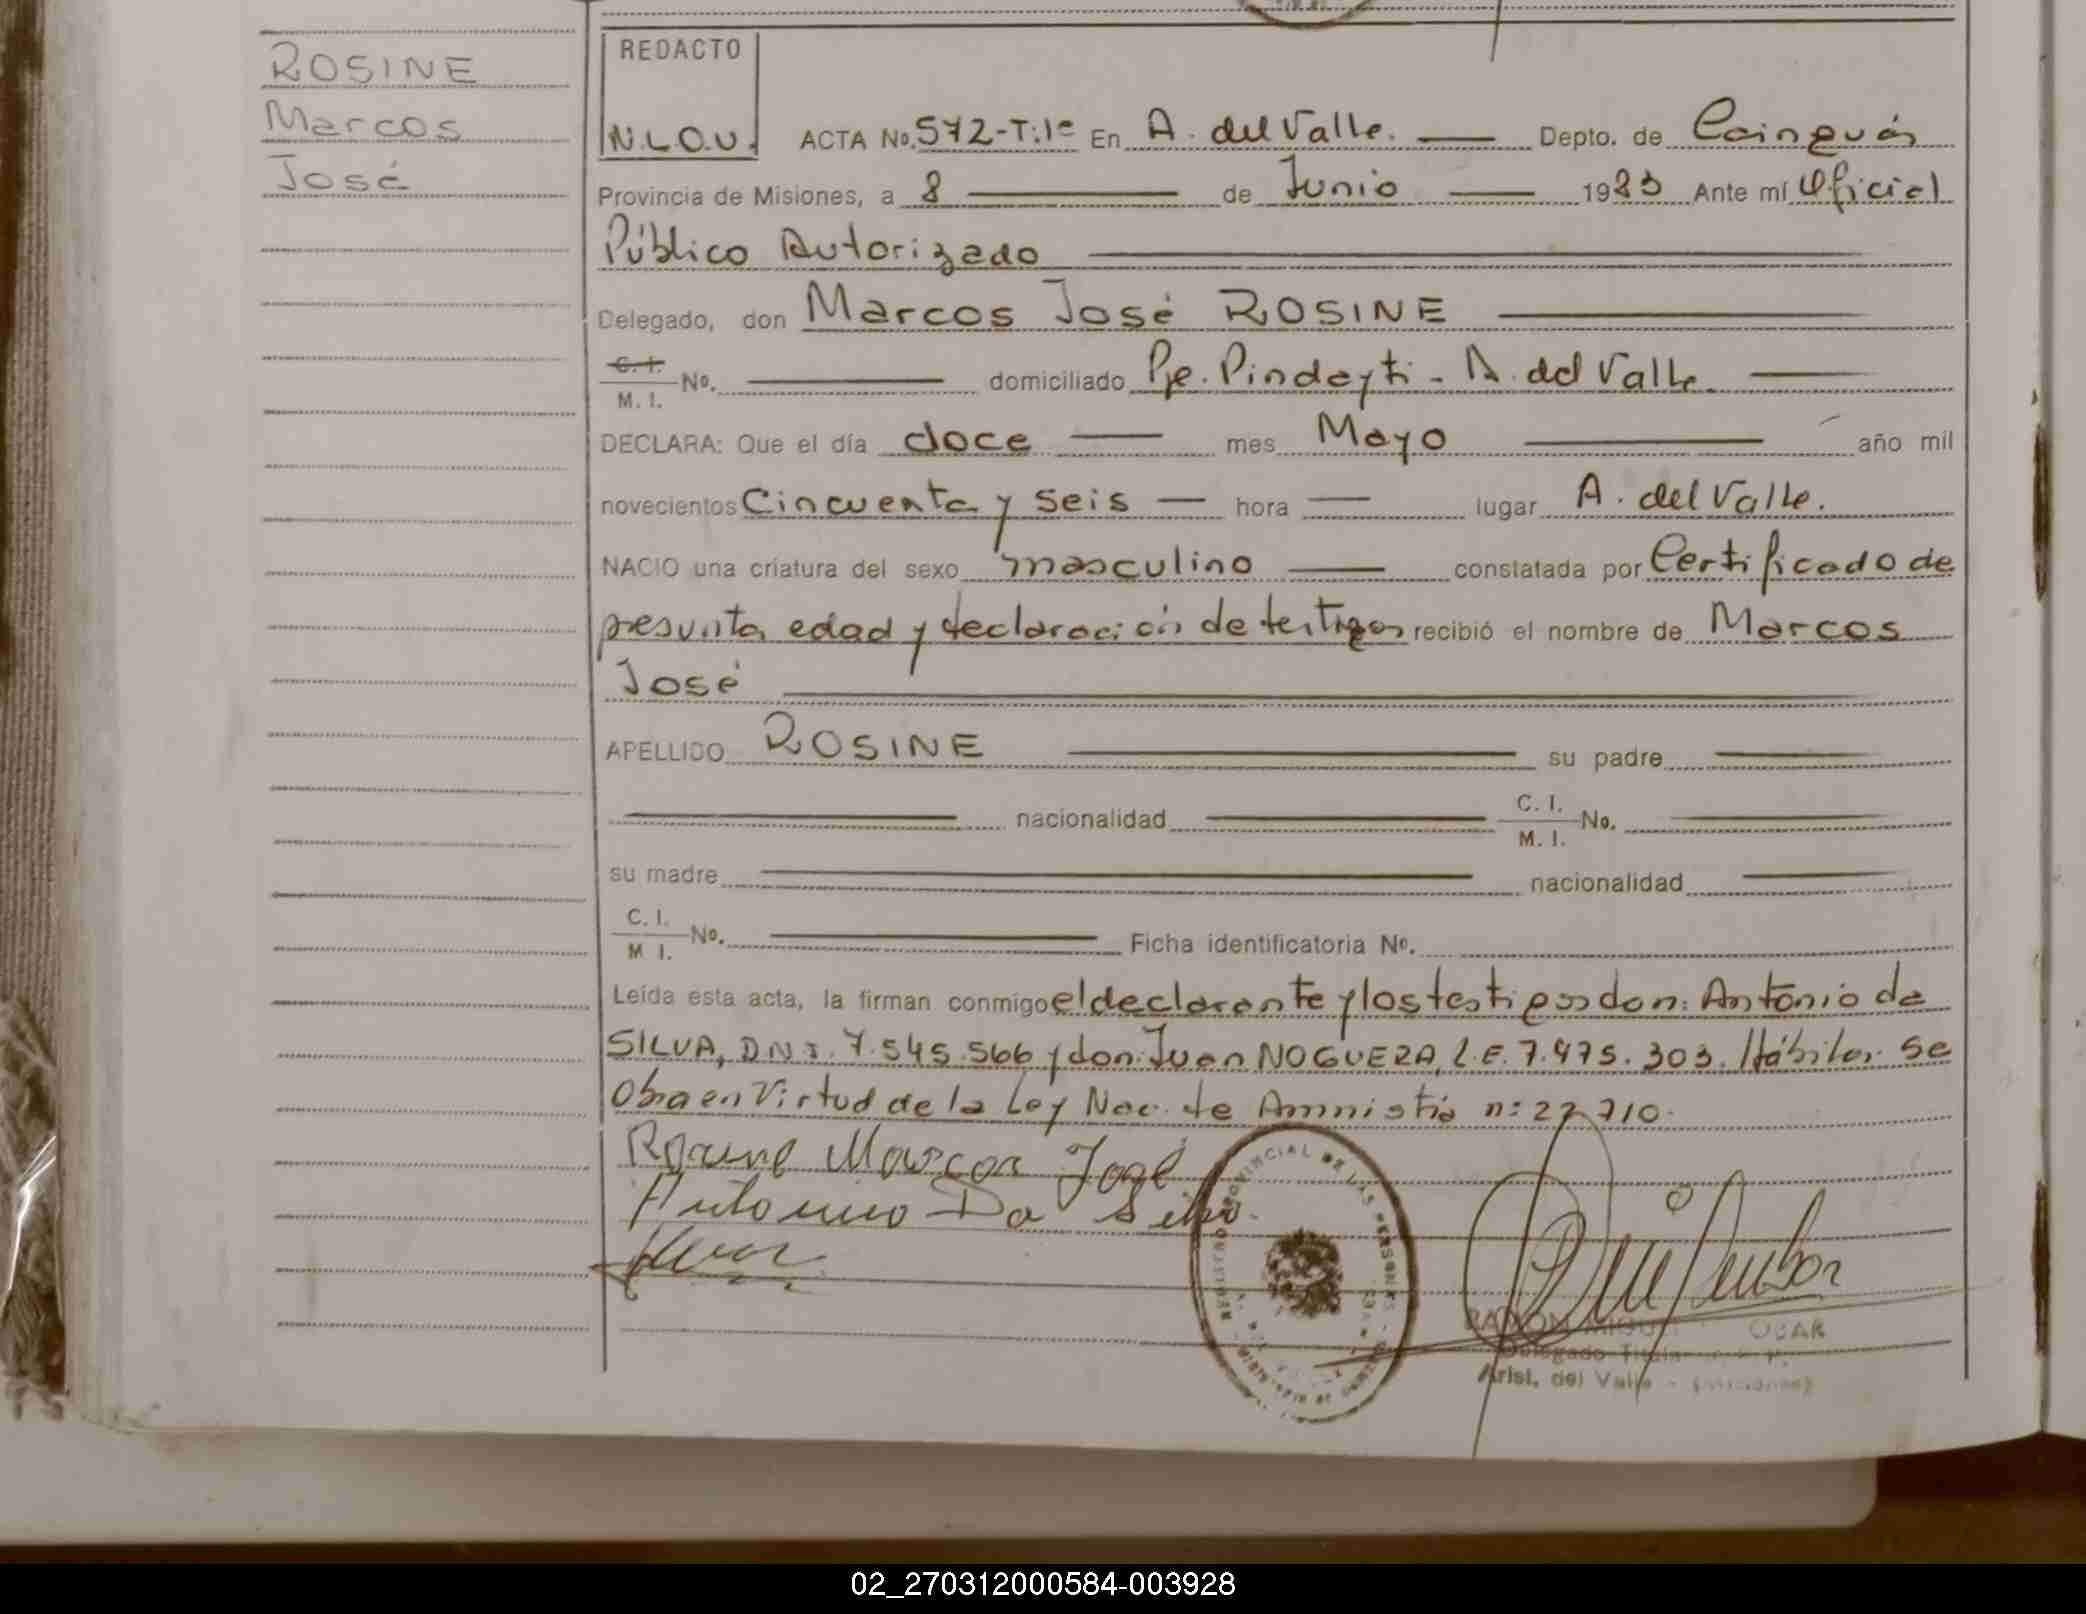 ROSINE
Marcos
José
REDACTO
N.L.O.U. ACTA No. 572-T:1º En A. del Valle. Depto. de Cainguás
Provincia de Misiones, a 8 de Junio 1983 Ante mí Oficial
Público Autorizado
Delegado, don Marcos José ROSINE
C. I.
M. I. No. domiciliado Pje. Pindayti - A. del Valle
DECLARA: Que el día doce mes Mayo año mil
novecientos Cincuenta y seis hora lugar A. del Valle.
NACIO una criatura del sexo masculino constatada por Certificado de
presunta edad y declaración de testigos recibió el nombre de Marcos
José
APELLIDO ROSINE su padre
nacionalidad C. I.
M. I. No.
su madre nacionalidad
C. I.
M. I. No. Ficha identificatoria No.
Leída esta acta, la firman conmigo el declarante y los testigos don: Antonio da
SILVA, D.N.I. 7.545.566 y don: Juan NOGUERA, L.E. 7.475.303. Hábiles. Se
Obra en Virtud de la Ley Nac. de Amnistía n: 22.710.
Rosine Marcos José
Antonio Da Silva
PROVINCIAL DE LAS PERSONAS
Arist. del Valle - (Misiones)
02_270312000584-003928